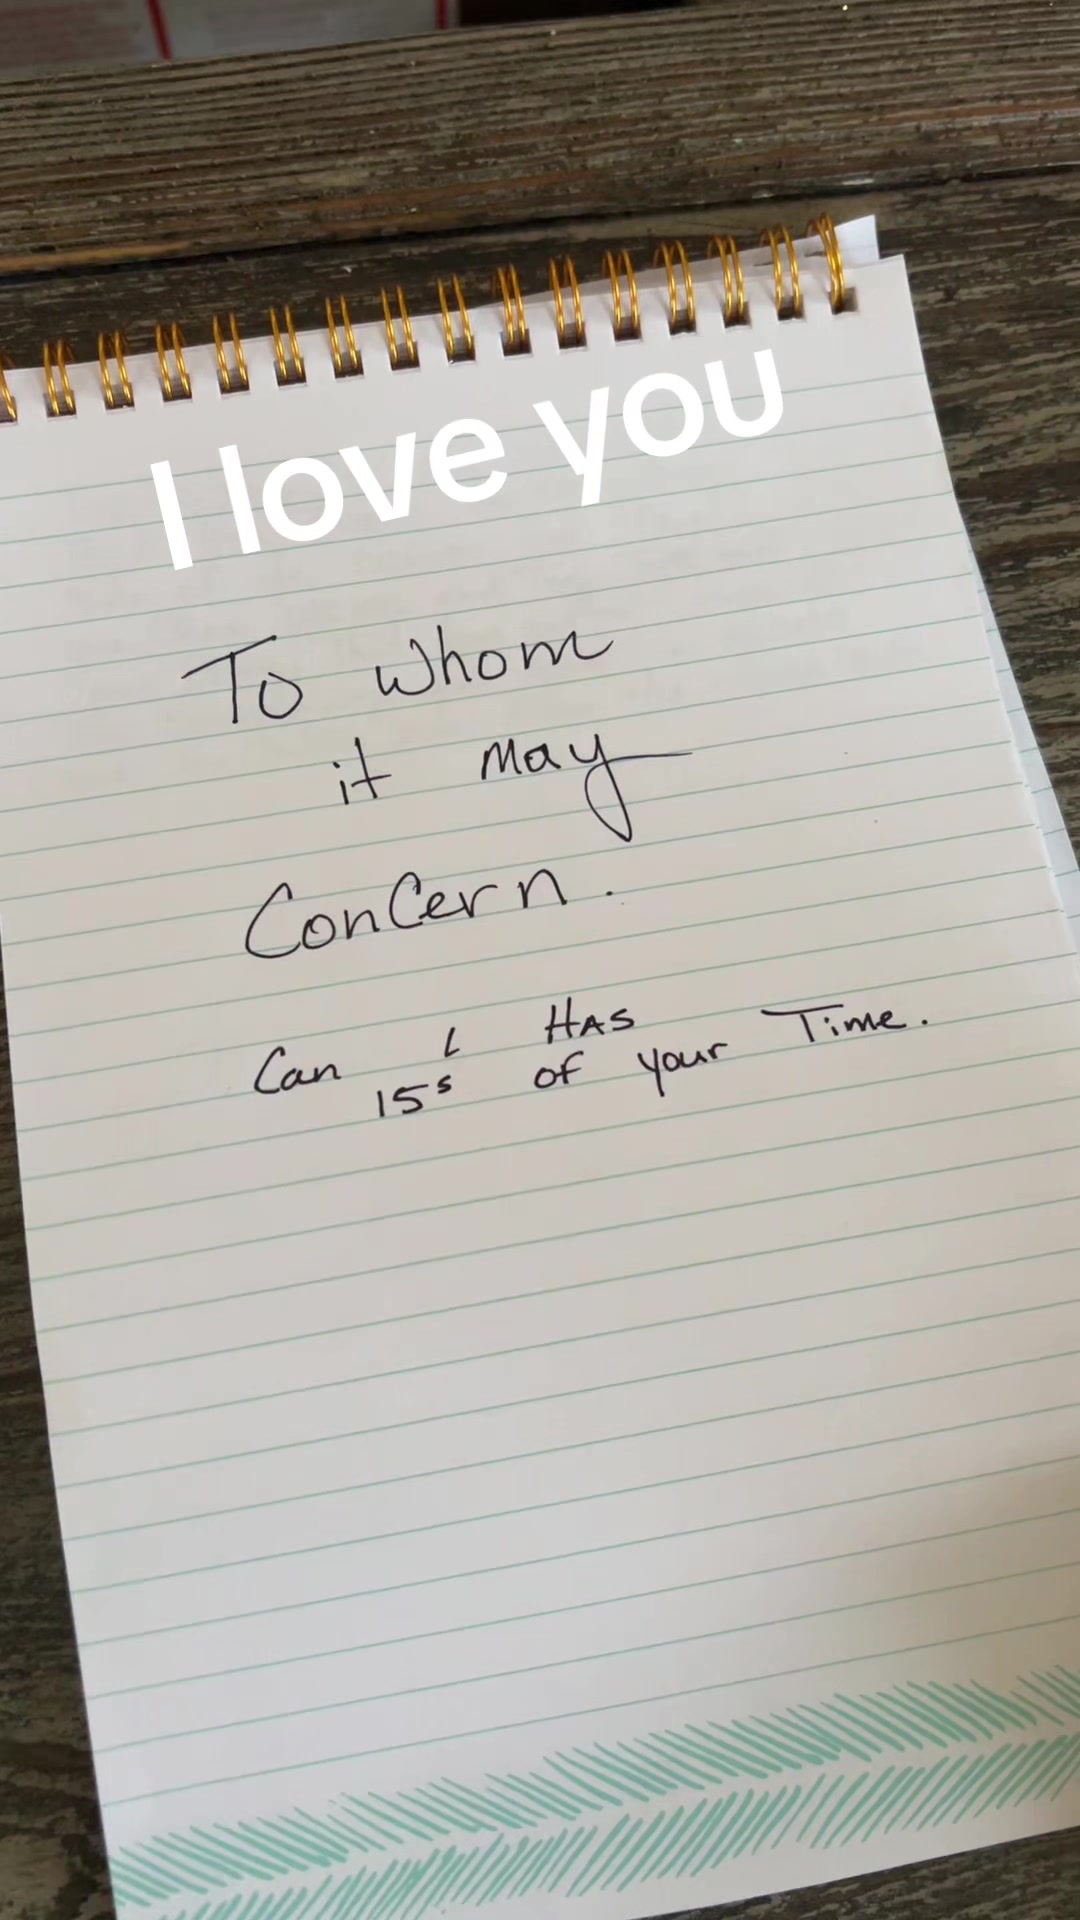 I love you
To whom
it may
Concern.
Can I HAS
15s of your Time.